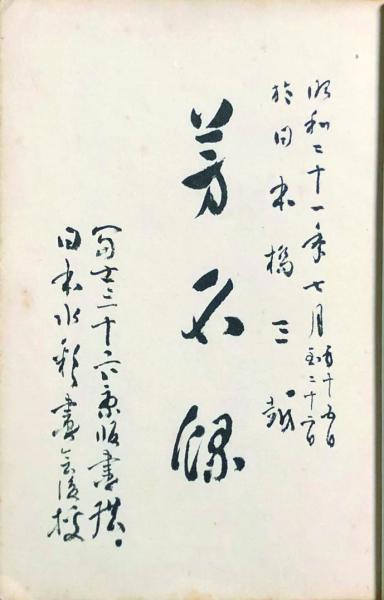 昭和二十一年七月自十五日至二十六日
於日本橋三越
芳名録
富士三十六景版画
日本水彩画会後援